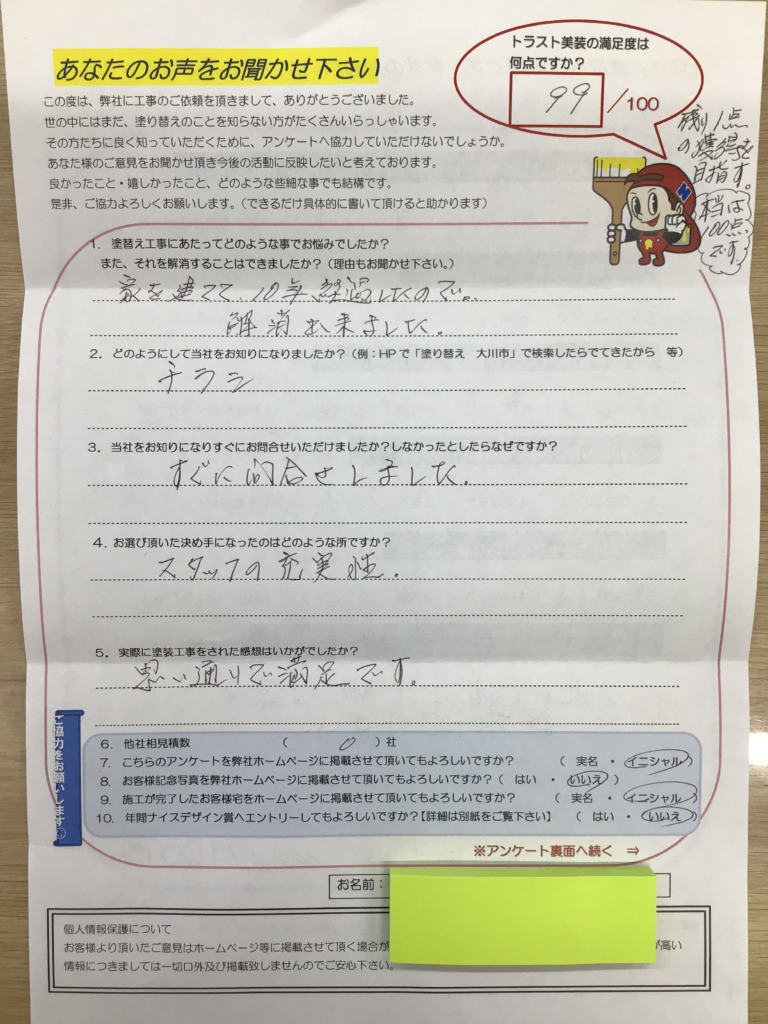 あなたのお声をお聞かせ下さい
トラスト美装の満足度は
何点ですか?
99/100
残り1点
の獲得を
目指す。
本当は
100点
です。
この度は、弊社に工事のご依頼を頂きまして、ありがとうございました。
世の中にはまだ、塗り替えのことを知らない方がたくさんいらっしゃいます。
その方たちに良く知っていただくために、アンケートへ協力していただけないでしょうか。
あなた様のご意見をお聞かせ頂き今後の活動に反映したいと考えております。
良かったこと・嬉しかったこと、どのような些細な事でも結構です。
是非、ご協力よろしくお願いします。(できるだけ具体的に書いて頂けると助かります)
N
1. 塗替え工事にあたってどのような事でお悩みでしたか?
また、それを解消することはできましたか?(理由もお聞かせ下さい。)
家を建てて、10年経過したので。
解消出来ました。
2. どのようにして当社をお知りになりましたか?(例:HPで「塗り替え 大川市」で検索したらでてきたから 等)
チラシ
3. 当社をお知りになりすぐにお問合せいただけましたか?しなかったとしたらなぜですか?
すぐに問合せしました。
4. お選び頂いた決め手になったのはどのような所ですか?
スタッフの充実性.
5. 実際に塗装工事をされた感想はいかがでしたか?
思い通りで満足です。
ご協力をお願いします☺
6. 他社相見積数 ( 0 )社
7. こちらのアンケートを弊社ホームページに掲載させて頂いてもよろしいですか? ( 実名 ・ イニシャル )
8. お客様記念写真を弊社ホームページに掲載させて頂いてもよろしいですか?( はい ・ いいえ )
9. 施工が完了したお客様宅をホームページに掲載させて頂いてもよろしいですか? ( 実名 ・ イニシャル )
10. 年間ナイスデザイン賞へエントリーしてもよろしいですか?【詳細は別紙をご覧下さい】 ( はい ・ いいえ )
※アンケート裏面へ続く ⇒
お名前:
個人情報保護について
お客様より頂いたご意見はホームページ等に掲載させて頂く場合が が高い
情報につきましては一切口外及び掲載致しませんのでご安心下さい。